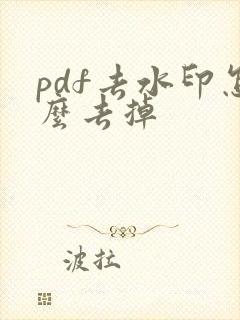 pdf去水印怎
么去掉
波拉